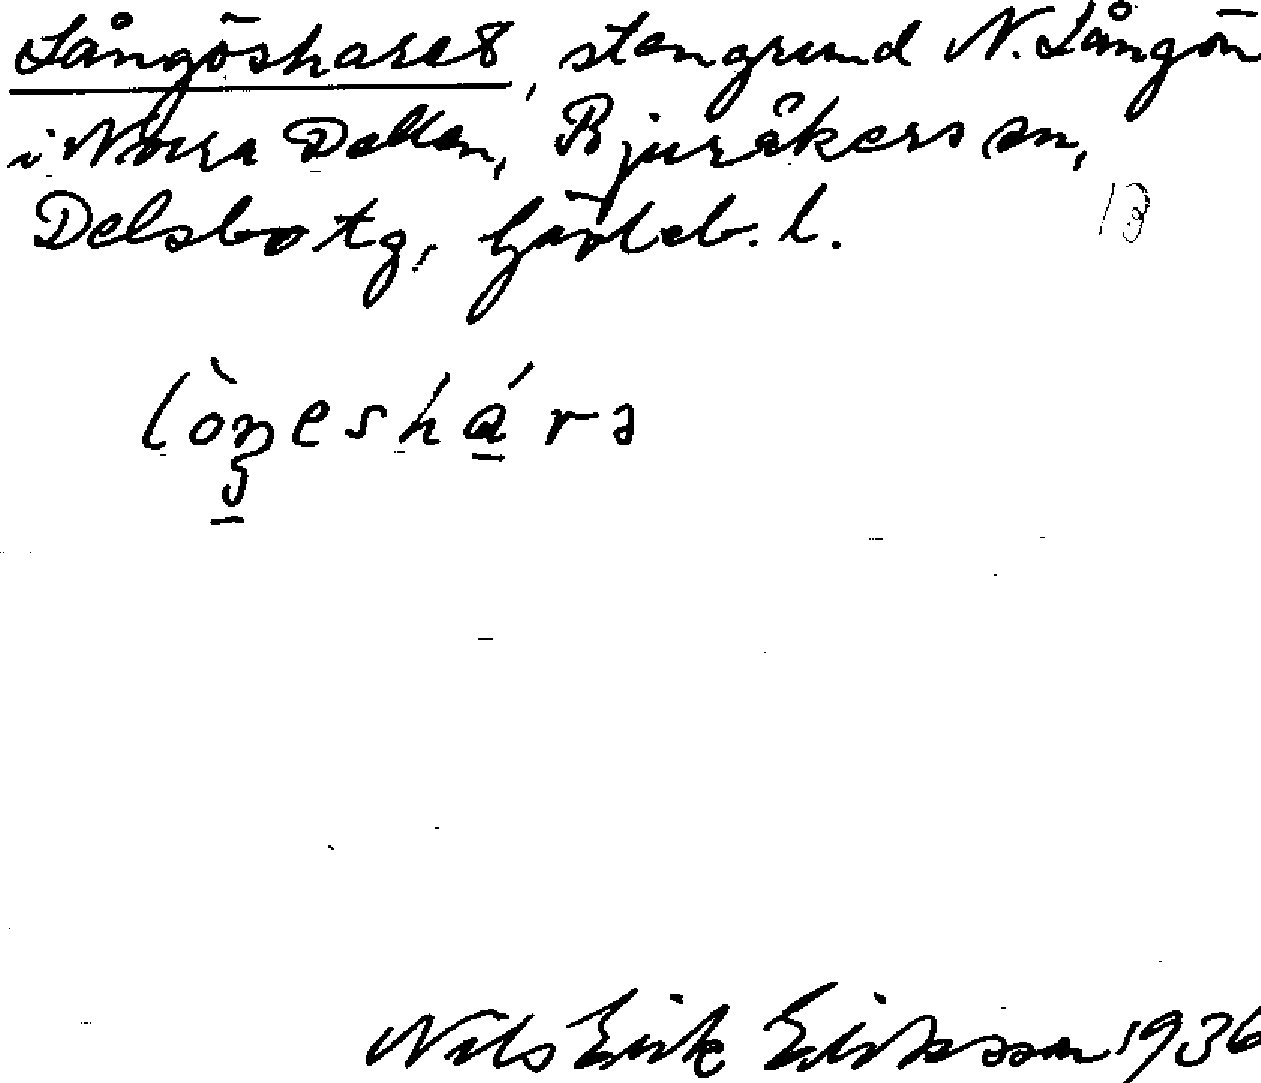 Långöshar​et, stengrund N. Långön
i Norra Dellen, Bjuråkers sn,
Delsbo tg, Gävleb. l.
13
Nils Erik Eriksson 1936